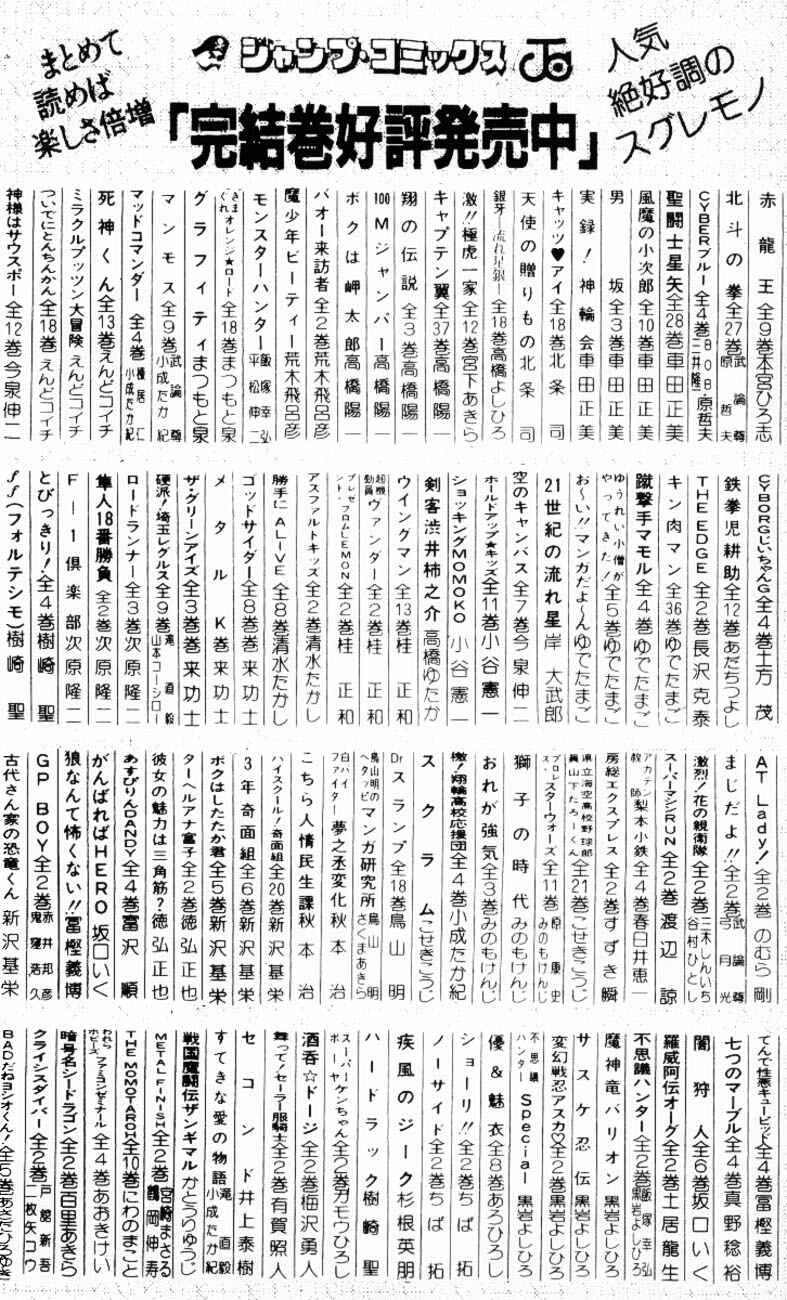 まとめて
読めば
楽しさ倍増
ジャンプ・コミックス
人気
絶好調の
スグレモノ
「完結巻好評発売中」
赤龍王 全9巻 本宮ひろ志
北斗の拳 全27巻 武論尊 原哲夫
CYBERブルー 全4巻 BOB 三井隆一 原哲夫
聖闘士星矢 全28巻 車田正美
風魔の小次郎 全10巻 車田正美
男坂 全3巻 車田正美
実録!神輪会 車田正美
キャッツ♥アイ 全18巻 北条司
天使の贈りもの 北条司
銀牙―流れ星銀― 全18巻 高橋よしひろ
激!!極虎一家 全12巻 宮下あきら
キャプテン翼 全37巻 高橋陽一
翔の伝説 全3巻 高橋陽一
100Mジャンパー 高橋陽一
ボクは岬太郎 高橋陽一
バオー来訪者 全2巻 荒木飛呂彦
魔少年ビーティー 荒木飛呂彦
モンスターハンター 飯塚幸弘 平松伸二
きまぐれオレンジ★ロード 全18巻 まつもと泉
グラフィティ まつもと泉
マンモス 全9巻 武論尊 小成たか紀
マッドコマンダー 全4巻 榎居仁 小成たか紀
死神くん 全13巻 えんどコイチ
ミラクルプッツン大冒険 えんどコイチ
ついでにとんちんかん 全18巻 えんどコイチ
神様はサウスポー 全12巻 今泉伸二
CYBORGじいちゃんG 全4巻 土方茂
鉄拳児耕助 全12巻 あだちつよし
THE EDGE 全2巻 長沢克泰
キン肉マン 全36巻 ゆでたまご
蹴撃手マモル 全4巻 ゆでたまご
ゆうれい小僧がやってきた! 全5巻 ゆでたまご
お〜い!!マンガだよ〜ん ゆでたまご
21世紀の流れ星 岸大武郎
空のキャンバス 全7巻 今泉伸二
ホールドアップ★キッズ 全11巻 小谷憲一
ショッキングMOMOKO 小谷憲一
剣客渋井柿之介 高橋ゆたか
ウイングマン 全13巻 桂正和
超機動員ヴァンダー 全2巻 桂正和
プレゼント・フロムLEMON 全2巻 桂正和
アスファルトキッズ 全2巻 清水たかし
勝手にALIVE 全8巻 清水たかし
ゴッドサイダー 全8巻 巻来功士
メタルK 巻来功士
ザ・グリーンアイズ 全3巻 巻来功士
硬派!埼玉レグルス 全9巻 滝直毅 山本コーシロー
ロードランナー 全3巻 次原隆二
隼人18番勝負 全2巻 次原隆二
F―1倶楽部 次原隆二
とびっきり! 全4巻 樹崎聖
ff(フォルテシモ) 樹崎聖
AT Lady! 全2巻 のむら剛
まじだよ!! 全2巻 武論尊 弓月光
激烈!花の親衛隊 全2巻 三木しんいち 谷村ひとし
スーパーマシンRUN 全2巻 渡辺諒
アカテン教師梨本小鉄 全4巻 春日井恵一
房総エクスプレス 全2巻 すずき瞬
県立海空高校野球部員山下たろーくん 全21巻 こせきこうじ
プロレス・スターウォーズ 全11巻 原康史 みのもけんじ
獅子の時代 みのもけんじ
おれが強気 全3巻 みのもけんじ
檄!翔輪高校応援団 全4巻 小成たか紀
スクラム こせきこうじ
Drスランプ 全18巻 鳥山明
鳥山明のヘタッピマンガ研究所 鳥山明 さくまあきら
白バイファイター夢之丞変化 秋本治
こちら人情民生課 秋本治
ハイスクール!奇面組 全20巻 新沢基栄
3年奇面組 全6巻 新沢基栄
ボクはしたたか君 全5巻 新沢基栄
ターヘルアナ富子 全2巻 徳弘正也
彼女の魅力は三角筋? 徳弘正也
あすぴりんDANDY 全4巻 富沢順
がんばればHERO 坂口いく
狼なんて怖くない!! 冨樫義博
GP BOY 全2巻 赤井邦彦 鬼窪浩久
古代さん家の恐竜くん 新沢基栄
てんで性悪キューピッド 全4巻 冨樫義博
七つのマーブル 全4巻 真野稔裕
闇狩人 全6巻 坂口いく
羅威阿伝オーグ 全2巻 土居龍生
不思議ハンター 全2巻 飯塚幸弘 黒岩よしひろ
魔神竜バリオン 黒岩よしひろ
サスケ忍伝 黒岩よしひろ
変幻戦忍アスカ♡ 全2巻 黒岩よしひろ
不思議ハンターSpecial 黒岩よしひろ
優&魅衣 全8巻 あろひろし
ショーリ!! 全2巻 ちば拓
ノーサイド 全2巻 ちば拓
疾風のジーク 杉根英朋
ハードラック 樹崎聖
スーパーボーヤケンちゃん 全2巻 ガモウひろし
酒呑☆ドージ 全2巻 梅沢勇人
舞って!セーラー服騎士 全2巻 有賀照人
セコンド 井上泰樹
すてきな愛の物語 滝直毅 小成たか紀
戦国魔闘伝ザンギマル かとうりゅうじ
METAL FINISH 全2巻 宮崎まさる 鶴岡伸寿
THE MOMOTAROH 全10巻 にわのまこと
われらホビーズ ファミコンゼミナール 全4巻 あおきけい
暗号名シードラゴン 全2巻 百里あきら
クライシスダイバー 全2巻 戸舘新吾 一枚矢コウ
BADだねヨシオくん! 全5巻 あさだひろゆき